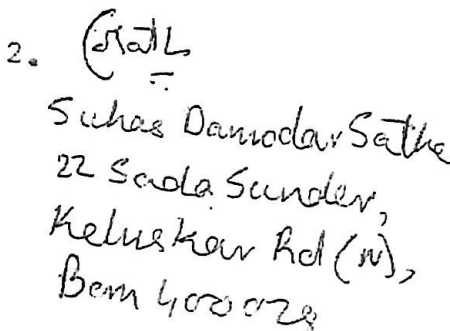 2.
Suhas Damodar Sathe
22 Sada Sunder,
Keluskar Rd (N),
Bom 400028